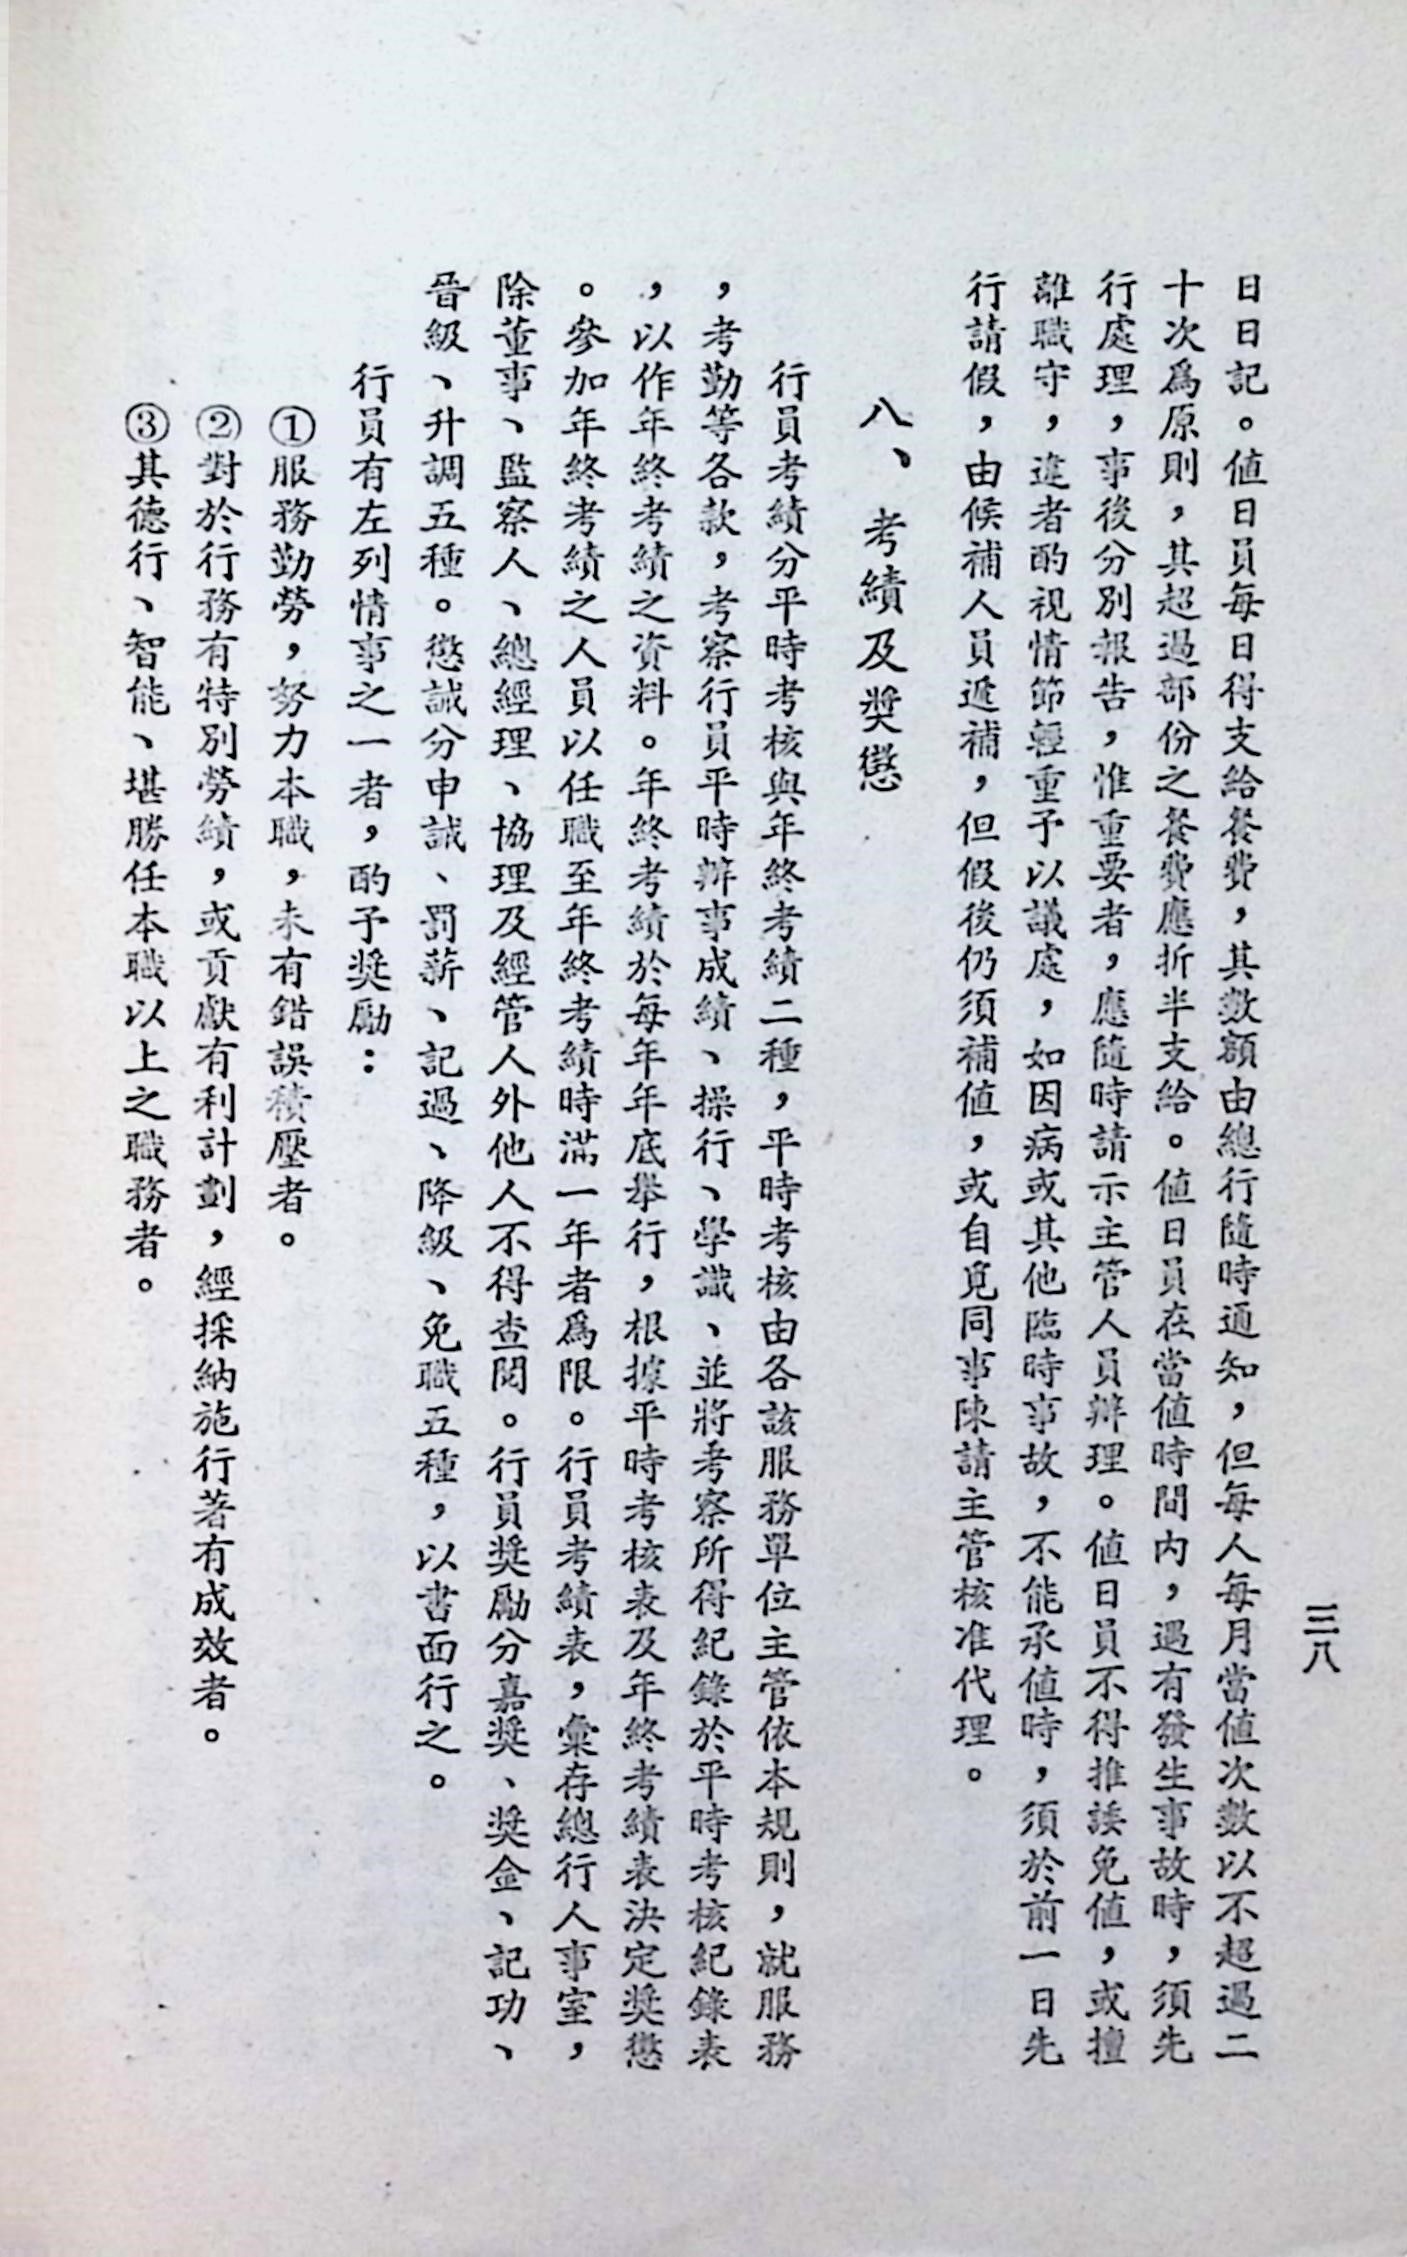 三八
日日記。値日員每日得支給餐費，其數額由總行隨時通知，但每人每月當值次數以不超過二
十次爲原則，其超過部份之餐費應折半支給。值日員在當值時間內，遇有發生事故時，須先
行處理，事後分別報告，惟重要者，應隨時請示主管人員辦理。值日員不得推諉免值，或擅
離職守，違者酌視情節輕重予以議處，如因病或其他臨時事故，不能承值時，須於前一日先
行請假，由候補人員遞補，但假後仍須補值，或自覓同事陳請主管核准代理。
八、考績及獎懲
行員考績分平時考核與年終考績二種，平時考核由各該服務單位主管依本規則，就服務
，考勤等各款，考察行員平時辦事成績、操行、學識、並將考察所得紀錄於平時考核紀錄表
，以作年終考績之資料。年終考績於每年年底舉行，根據平時考核表及年終考績表決定獎懲
。參加年終考績之人員以任職至年終考績時滿一年者爲限。行員考績表，彙存總行人事室，
除董事、監察人、總經理、協理及經管人外他人不得查閱。行員獎勵分嘉獎、獎金、記功、
晉級、升調五種。懲誡分申誡、罰薪、記過、降級、免職五種，以書面行之。
行員有左列情事之一者，酌予獎勵：
①服務勤勞，努力本職，未有錯誤積壓者。
②對於行務有特別勞績，或貢獻有利計劃，經採納施行著有成效者。
③其德行、智能、堪勝任本職以上之職務者。